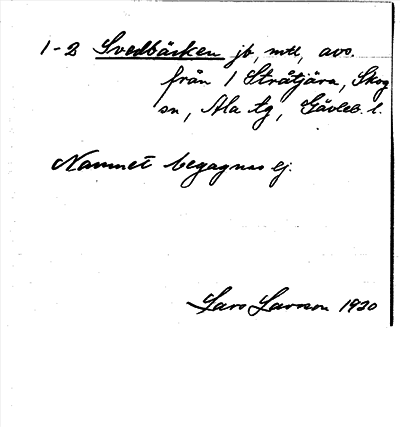 1-2 Svedbäcken jb, mtl, avs.
från 1 Stråtjära, Skog
sn, Ala tg, Gävleb. l.
Namnet begagnas ej.
Lars Larsson 1920